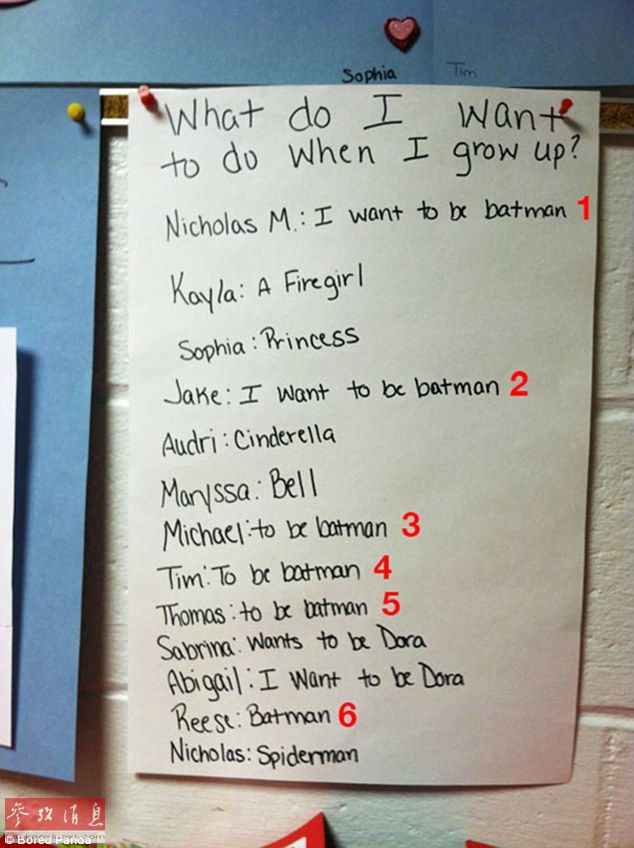 Sophia Tim
What do I want
to do when I grow up?
Nicholas M.: I want to be batman 1
Kayla: A Firegirl
Sophia: Princess
Jake: I want to be batman 2
Audri: Cinderella
Maryssa: Bell
Michael: to be batman 3
Tim: To be batman 4
Thomas: to be batman 5
Sabrina: Wants to be Dora
Abigail: I Want to be Dora
Reese: Batman 6
Nicholas: Spiderman
参考消息
© Bored Panda